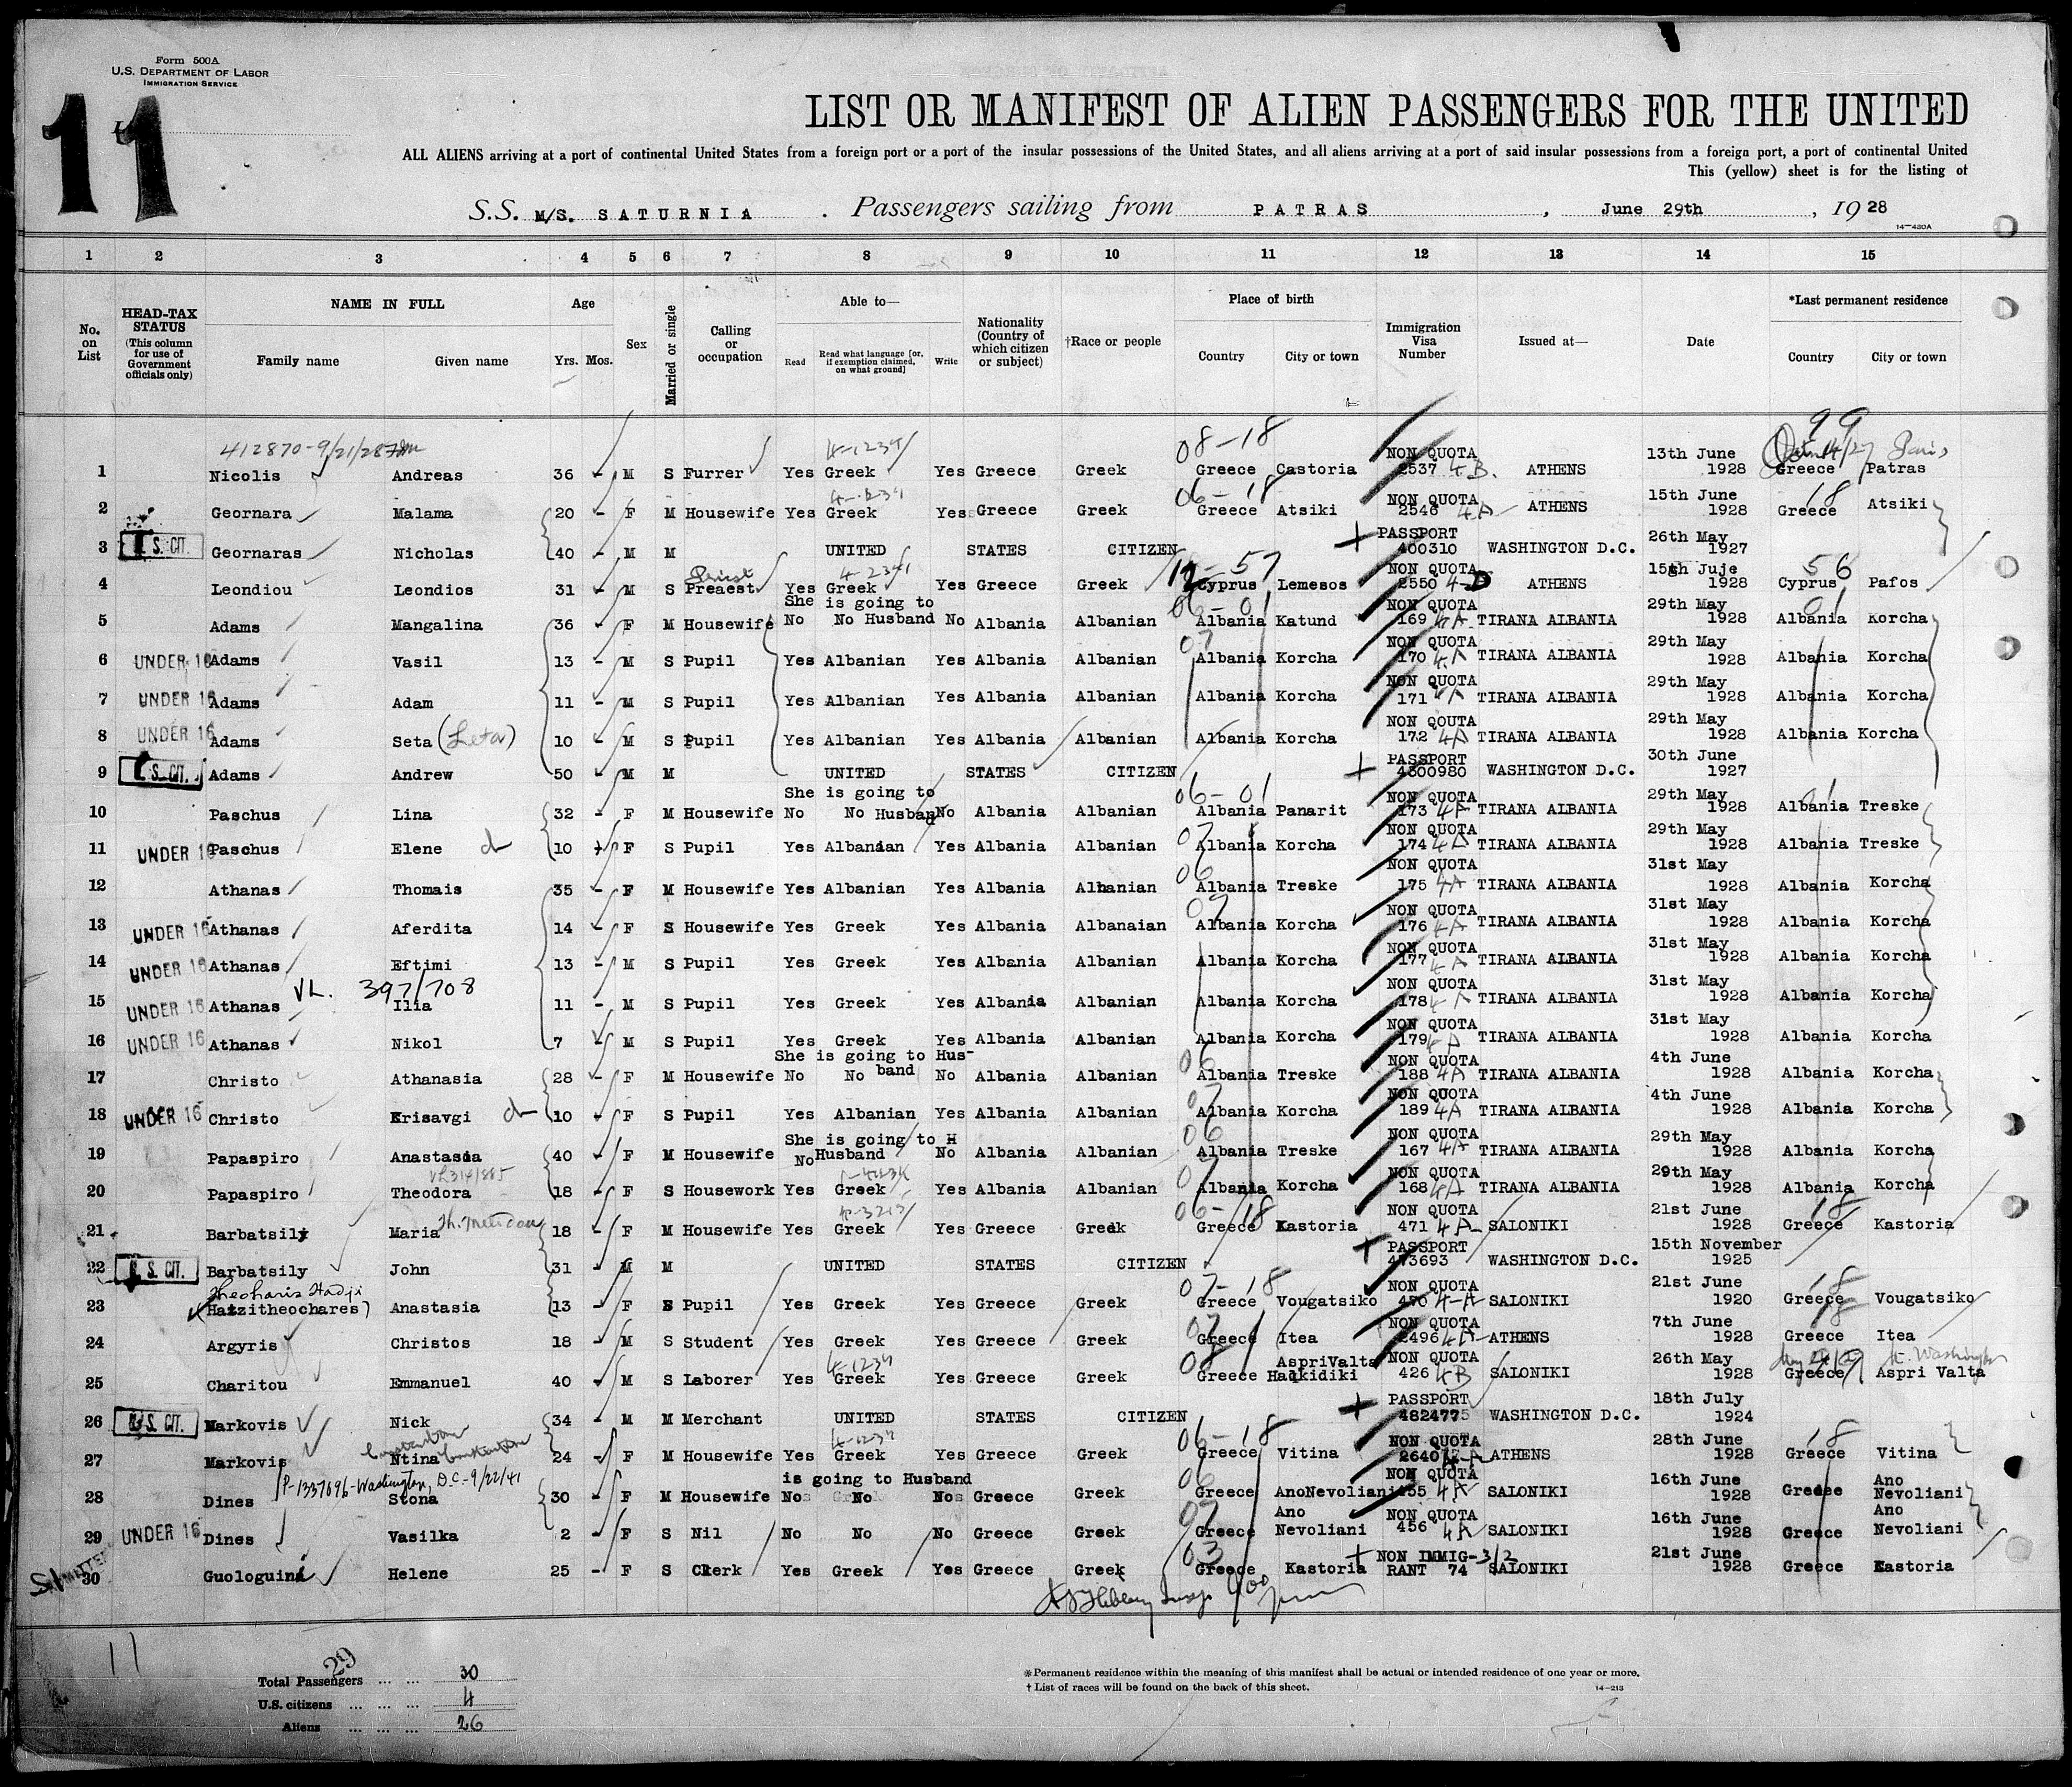 Form 500A
U.S. DEPARTMENT OF LABOR
IMMIGRATION SERVICE
11
LIST OR MANIFEST OF ALIEN PASSENGERS FOR THE UNITED
ALL ALIENS arriving at a port of continental United States from a foreign port or a port of the insular possessions of the United States, and all aliens arriving at a port of said insular possessions from a foreign port, a port of continental United
This (yellow) sheet is for the listing of
S.S. M/S. SATURNIA . Passengers sailing from PATRAS , June 29th , 1928
14—430A
1 2 3 4 5 6 7 8 9 10 11 12 13 14 15
No. on List
HEAD-TAX STATUS (This column for use of Government officials only)
NAME IN FULL
Family name Given name
Age
Yrs. Mos.
Sex
Married or single
Calling or occupation
Able to—
Read Read what language [or, if exemption claimed, on what ground] Write
Nationality (Country of which citizen or subject)
†Race or people
Place of birth
Country City or town
Immigration Visa Number
Issued at—
Date
*Last permanent residence
Country City or town
412870-9/21/28 4-1234 08-18 99
1 Nicolis Andreas 36 - M S Furrer Yes Greek Yes Greece Greek Greece Castoria NON QUOTA 2537 4B. ATHENS 13th June 1928 Greece Patras Paris
2 Geornara Malama 20 - F M Housewife Yes Greek Yes Greece Greek 06-18 Greece Atsiki NON QUOTA 2546 4A ATHENS 15th June 1928 18 Greece Atsiki
3 U.S. CIT. Geornaras Nicholas 40 - M M UNITED STATES CITIZEN PASSPORT 400310 WASHINGTON D.C. 26th May 1927
4 Leondiou Leondios 31 - M S Priest Preaest Yes Greek Yes Greece Greek 12-57 Cyprus Lemesos NON QUOTA 2550 4-D ATHENS 15th Juje 1928 56 Cyprus Pafos
5 Adams Mangalina 36 - F M Housewife She is going to No No Husband No Albania Albanian 06-01 Albania Katund NON QUOTA 169 4A TIRANA ALBANIA 29th May 1928 01 Albania Korcha
6 UNDER 16 Adams Vasil 13 - M S Pupil Yes Albanian Yes Albania Albanian 07 Albania Korcha NON QUOTA 170 4A TIRANA ALBANIA 29th May 1928 Albania Korcha
7 UNDER 16 Adams Adam 11 - M S Pupil Yes Albanian Yes Albania Albanian Albania Korcha NON QUOTA 171 4A TIRANA ALBANIA 29th May 1928 Albania Korcha
8 UNDER 16 Adams Seta (Leta) 10 - M S Pupil Yes Albanian Yes Albania Albanian Albania Korcha NON QOUTA 172 4A TIRANA ALBANIA 29th May 1928 Albania Korcha
9 U.S. CIT. Adams Andrew 50 - M M UNITED STATES CITIZEN PASSPORT 4300980 WASHINGTON D.C. 30th June 1927
10 Paschus Lina 32 - F M Housewife She is going to No No Husband No Albania Albanian 06-01 Albania Panarit NON QUOTA 173 4A TIRANA ALBANIA 29th May 1928 01 Albania Treske
11 UNDER 16 Paschus Elene d 10 F S Pupil Yes Albanian Yes Albania Albanian 07 Albania Korcha NON QUOTA 174 4A TIRANA ALBANIA 29th May 1928 Albania Treske
12 Athanas Thomais 35 - F M Housewife Yes Albanian Yes Albania Albanian 06 Albania Treske NON QUOTA 175 4A TIRANA ALBANIA 31st May 1928 Albania Korcha
13 UNDER 16 Athanas Aferdita 14 - F S Housewife Yes Greek Yes Albania Albanaian 07 Albania Korcha NON QUOTA 176 4A TIRANA ALBANIA 31st May 1928 Albania Korcha
14 UNDER 16 Athanas Eftimi 13 - M S Pupil Yes Greek Yes Albania Albanian Albania Korcha NON QUOTA 177 4A TIRANA ALBANIA 31st May 1928 Albania Korcha
VL. 397/708
15 UNDER 16 Athanas Ilia 11 - M S Pupil Yes Greek Yes Albania Albanian Albania Korcha NON QUOTA 178 4A TIRANA ALBANIA 31st May 1928 Albania Korcha
16 UNDER 16 Athanas Nikol 7 M S Pupil Yes Greek Yes Albania Albanian Albania Korcha NON QUOTA 179 4A TIRANA ALBANIA 31st May 1928 Albania Korcha
17 Christo Athanasia 28 - F M Housewife She is going to Hus-band No No No Albania Albanian 06 Albania Treske NON QUOTA 188 4A TIRANA ALBANIA 4th June 1928 Albania Korcha
18 UNDER 16 Christo Krisavgi d 10 - F S Pupil Yes Albanian Yes Albania Albanian 07 Albania Korcha NON QUOTA 189 4A TIRANA ALBANIA 4th June 1928 Albania Korcha
19 Papaspiro Anastasia 40 - F M Housewife She is going to H No Husband No Albania Albanian 06 Albania Treske NON QUOTA 167 4A TIRANA ALBANIA 29th May 1928 Albania Korcha
20 Papaspiro Theodora 18 - F S Housework Yes Greek Yes Albania Albanian 07 Albania Korcha NON QUOTA 168 4A TIRANA ALBANIA 29th May 1928 Albania Korcha
21 Barbatsily Maria 18 - F M Housewife Yes Greek Yes Greece Greek 06-18 Greece Kastoria NON QUOTA 471 4A SALONIKI 21st June 1928 18 Greece Kastoria
22 U.S. CIT. Barbatsily John 31 - M M UNITED STATES CITIZEN PASSPORT 473693 WASHINGTON D.C. 15th November 1925
Theoharis Hadji
23 Hatzitheochares Anastasia 13 - F S Pupil Yes Greek Yes Greece Greek 07-18 Greece Vougatsiko NON QUOTA 470 4-A SALONIKI 21st June 1920 18 Greece Vougatsiko
24 Argyris Christos 18 - M S Student Yes Greek Yes Greece Greek 07 Greece Itea NON QUOTA 2496 4A ATHENS 7th June 1928 18 Greece Itea
25 Charitou Emmanuel 40 M S Laborer Yes 4-1234 Greek Yes Greece Greek 08 Greece AspriValta Halkidiki NON QUOTA 426 4B SALONIKI 26th May 1928 Greece Aspri Valta
26 U.S. CIT. Markovis Nick 34 - M M Merchant UNITED STATES CITIZEN PASSPORT 4824775 WASHINGTON D.C. 18th July 1924
27 Markovis Ntina 24 - F M Housewife Yes 4-1234 Greek Yes Greece Greek 06-18 Greece Vitina NON QUOTA 2640 4-A ATHENS 28th June 1928 18 Greece Vitina
P-1337096-Washington, D.C.-9/22/41
28 Dines Stona 30 - F M Housewife is going to Husband No No No Greece Greek 06 Greece AnoNevoliani 455 4A SALONIKI NON QUOTA 16th June 1928 Greece Ano Nevoliani
29 UNDER 16 Dines Vasilka 2 - F S Nil No No No Greece Greek 07 Greece Ano Nevoliani NON QUOTA 456 4A SALONIKI 16th June 1928 Greece Ano Nevoliani
30 Guologuini Helene 25 - F S Clerk Yes Greek Yes Greece Greek 03 Greece Kastoria NON IMMIG-RANT 74 3/2 SALONIKI 21st June 1928 Greece Kastoria
11
29
Total Passengers ... ... 30
U.S. citizens ... ... ... 4
Aliens ... ... ... 26
*Permanent residence within the meaning of this manifest shall be actual or intended residence of one year or more.
† List of races will be found on the back of this sheet. 14—213